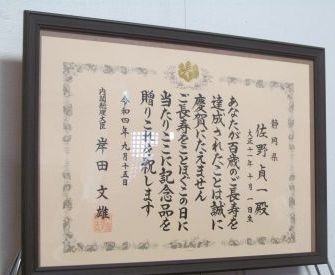 静岡県
佐野貞一殿
大正十一年十月一日生
あなたが百歳のご長寿を
達成されたことは誠に
慶賀にたえません
ご長寿をことほぐこの日に
当たりここに記念品を
贈りこれを祝します
令和四年九月十五日
内閣総理大臣 岸田文雄